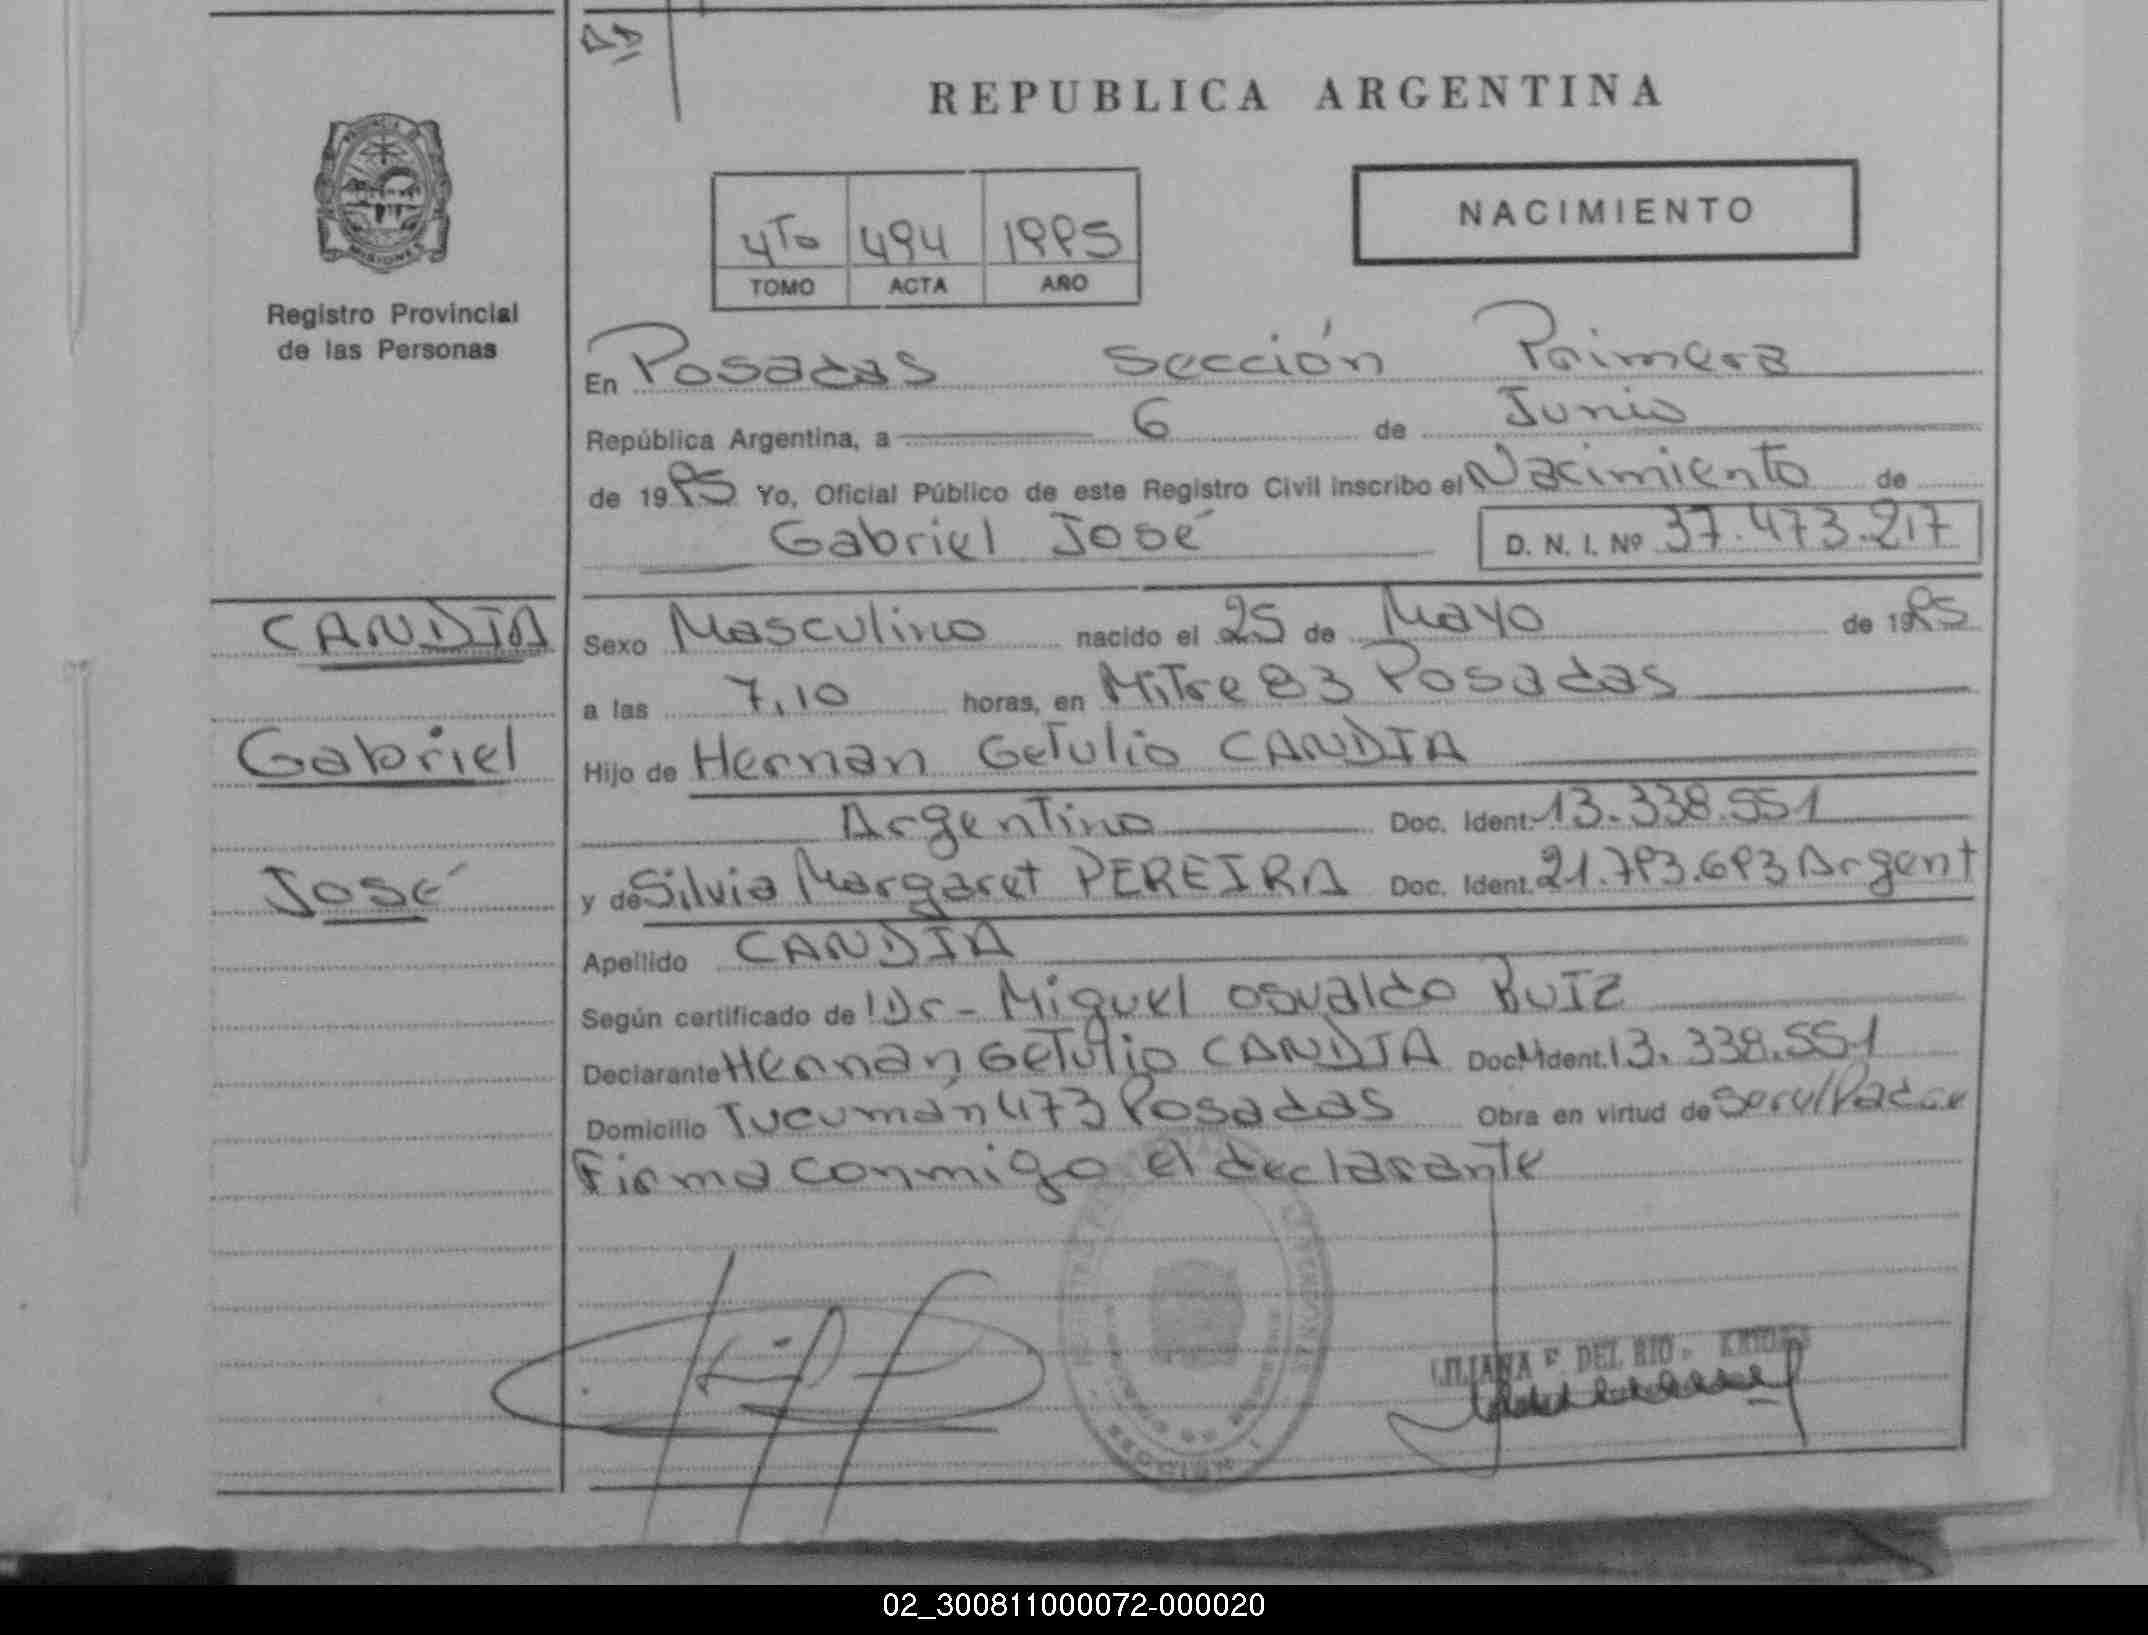 REPUBLICA ARGENTINA
PROVINCIA DE
MISIONES
Registro Provincial
de las Personas
4To 494 1995
TOMO ACTA AÑO
NACIMIENTO
En Posadas Sección Primera
República Argentina, a 6 de Junio
de 1995 Yo, Oficial Público de este Registro Civil inscribo el Nacimiento de
Gabriel José D. N. I. Nº 37.473.217
CANDIA
Gabriel
José
Sexo Masculino nacido el 25 de Mayo de 1995
a las 7,10 horas, en Mitre 83 Posadas
Hijo de Hernan Getulio CANDIA
Argentino Doc. Ident. 13.338.551
y de Silvia Margaret PEREIRA Doc. Ident. 21.793.693 Argent
Apellido CANDIA
Según certificado de Dr - Miguel Osvaldo RUIZ
Declarante Hernán Getulio CANDIA Doc. Ident. 13.338.551
Domicilio Tucumán 473 Posadas Obra en virtud de ser el Padre
Firma conmigo el declarante
LILIANA F DEL RIO
MISIONES
02_300811000072-000020